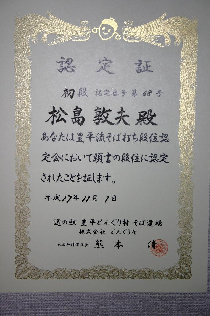 認定証
初段 認定 第 号
松島敦夫殿
あなたは豊平流そば打ち段位認
定会において頭書の段位に認定
されたことを証します。
平成17年11月1日
道の駅 豊平どんぐり村 そば道場
株式会社 どんぐり
熊本